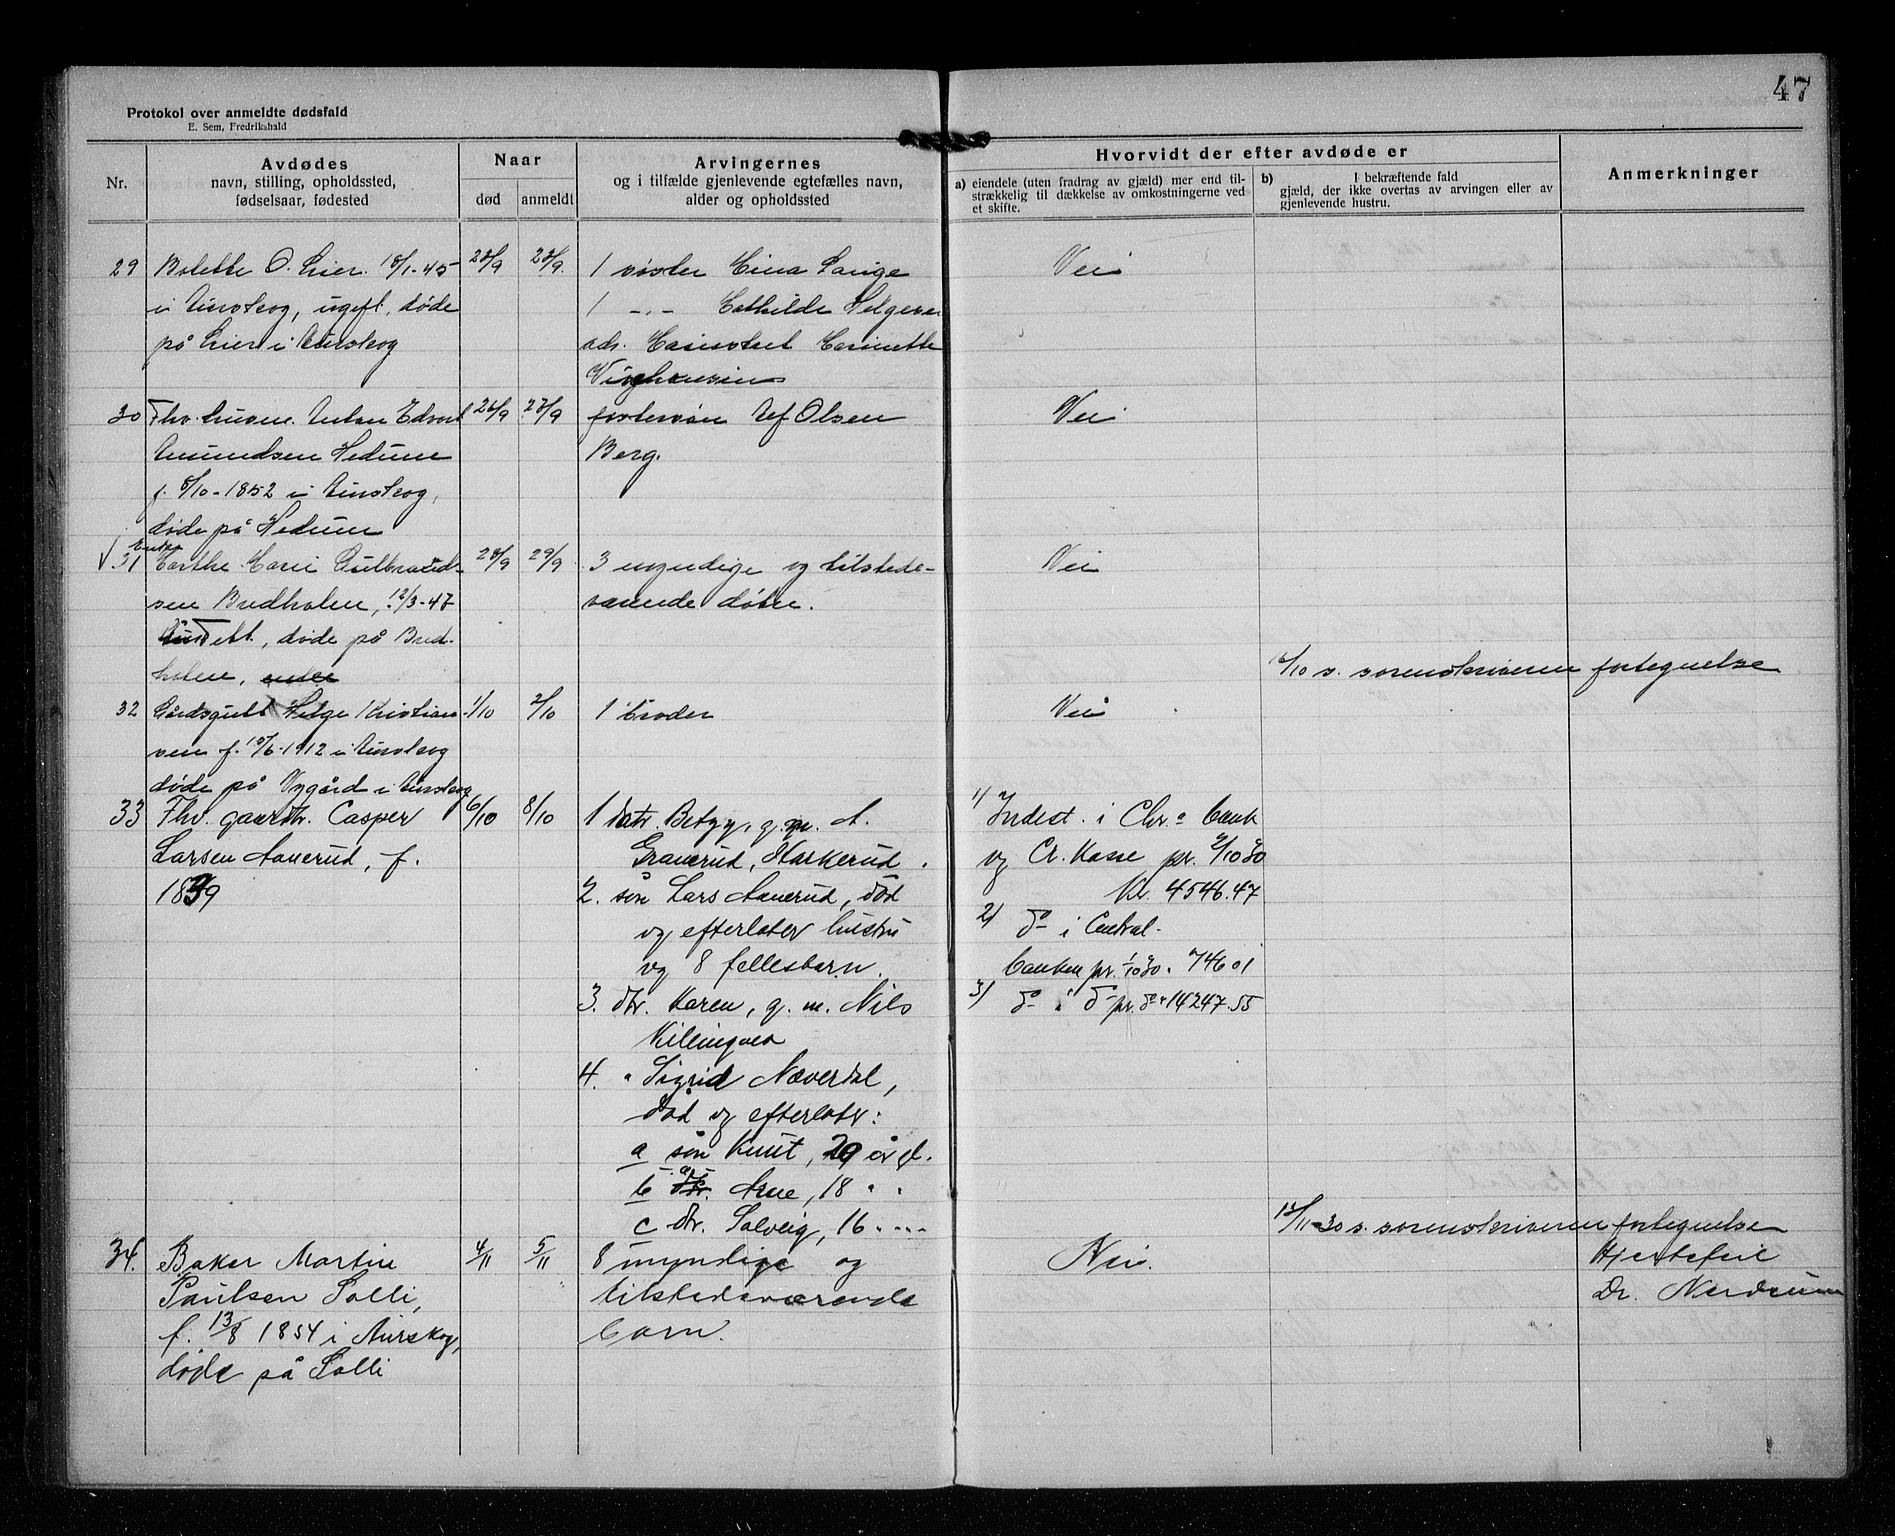 47
Protokol over anmeldte dødsfald
E. Sem, Fredrikshald
Nr.
Avdødes
navn, stilling, opholdssted,
fødselsaar, fødested
Naar
død
anmeldt
Arvingernes
og i tilfælde gjenlevende egtefælles navn,
alder og opholdssted
Hvorvidt der efter avdøde er
a) eiendele (uten fradrag av gjæld) mer end til-
strækkelig til dækkelse av omkostningerne ved
et skifte.
b) I bekræftende fald
gjæld, der ikke overtas av arvingen eller av
gjenlevende hustru.
Anmerkninger
29 Bolette O. Lier 18/1-45 28/9 28/9. 1 søster Lange Nei
i Aurskog, ugift, døde 1 -„- Helgesen
på Lier i Aurskog adr.
30 Fhv. Anton Edvart 26/9 27/9 fostersøn Olsen Nei
Amundsen Hedum Berg.
f. 8/10-1852 i Aurskog,
døde på Hedum
Enke
√ 31 Marthe Marie Gulbrand- 28/9 29/9 3 myndige og tilstede- Nei
sen Bredholen, 12/3-47 værende døtre.
døde på Bred-
holen, enke
16/10 s. sorenskriveren fortegnelse
32 Gårdsgutt Helge Kristian- 1/10 2/10 1 broder Nei
sen f. 1912 i Aurskog
døde på Nygård i Aurskog
33 Fhv. gaardbr. Casper 6/10 8/10 1 datr. Betzy, g. m. A. 1) Indest. i Chr.a bank
Larsen Aanerud, f. Granerud, Harkerud. og Cr. Kasse pr. 2/10 30
1839 2. søn Lars Aanerud, død Kr. 4546.47
og efterlater hustru 2) do i Central-
og 8 fellesbarn. banken pr. 1/10 30 „ 746 01
3. dtr. Karen, g. m. Nils 3) do i do pr. do „ 14247.55
Killingmo
4. „ Sigrid Næverdal,
død og efterlater:
a søn Knut, 20 år gl.
b dtr. Arne, 18 „ „
c dtr. Solveig, 16 „ „
12/11-30 s. sorenskriveren fortegnelse
34. Baker Martin 4/11 5/11 8 myndige og Nei. Hjertefeil
Paulsen Solli, tilstedeværende Dr. Nerdrum
f. 13/8 1854 i Aurskog, barn.
døde på Solli